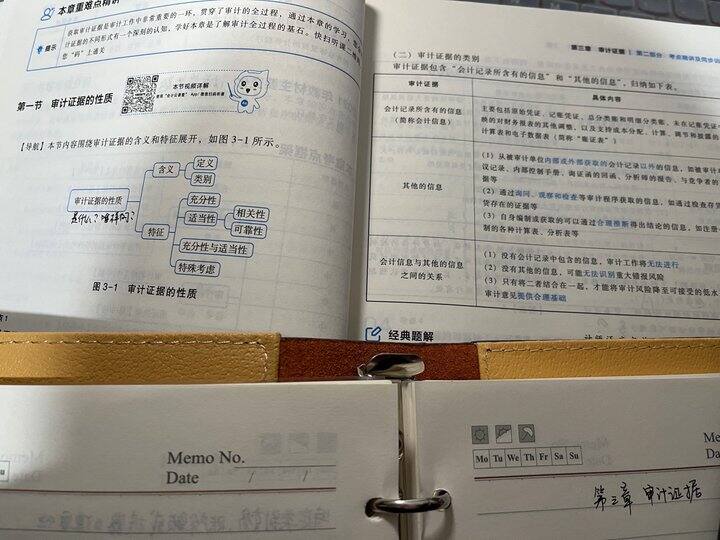 本章重难点精讲
获取审计证据是审计工作中非常重要的一环，贯穿了审计的全过程，通过本章的学习，
计证据的不同形式有一个深刻的认知，学好本章是了解审计全过程的基石。快扫听课二维
您“码”上通关
提示
第一节 审计证据的性质
本节视频详解
【导航】本节内容围绕审计证据的含义和特征展开，如图3-1所示。
审计证据的性质
含义
定义
类别
特征
充分性
适当性
相关性
可靠性
充分性与适当性
特殊考虑
图3-1 审计证据的性质
第三章 审计证据 | 第二部分 考点精讲及同步训
（二）审计证据的类别
审计证据包含“会计记录所含有的信息”和“其他的信息”，归纳如下表。
审计证据
具体内容
会计记录所含有的信息
（简称会计信息）
主要包括原始凭证、记账凭证、总分类账和明细分类账、未在记账凭证
映的对财务报表的其他调整，以及支持成本分配、计算、调节和披露的
计算表和电子数据表（简称“账证表”）
其他的信息
（1）从被审计单位内部或外部获取的会计记录以外的信息，如被审计单
议记录、内部控制手册、询证函的回函、分析师的报告、与竞争者的
据等
（2）通过询问、观察和检查等审计程序获取的信息，如通过检查存货
货存在的证据等
（3）自身编制或获取的可以通过合理推断得出结论的信息，如注册
制的各种计算表、分析表等
会计信息与其他的信息
之间的关系
（1）没有会计记录中包含的信息，审计工作将无法进行
（2）没有其他的信息，可能无法识别重大错报风险
（3）只有将二者结合在一起，才能将审计风险降至可接受的低水
审计意见提供合理基础
经典题解
Memo No.
Date / /
Mo Tu We Th Fr Sa Su
第三章 审计证据